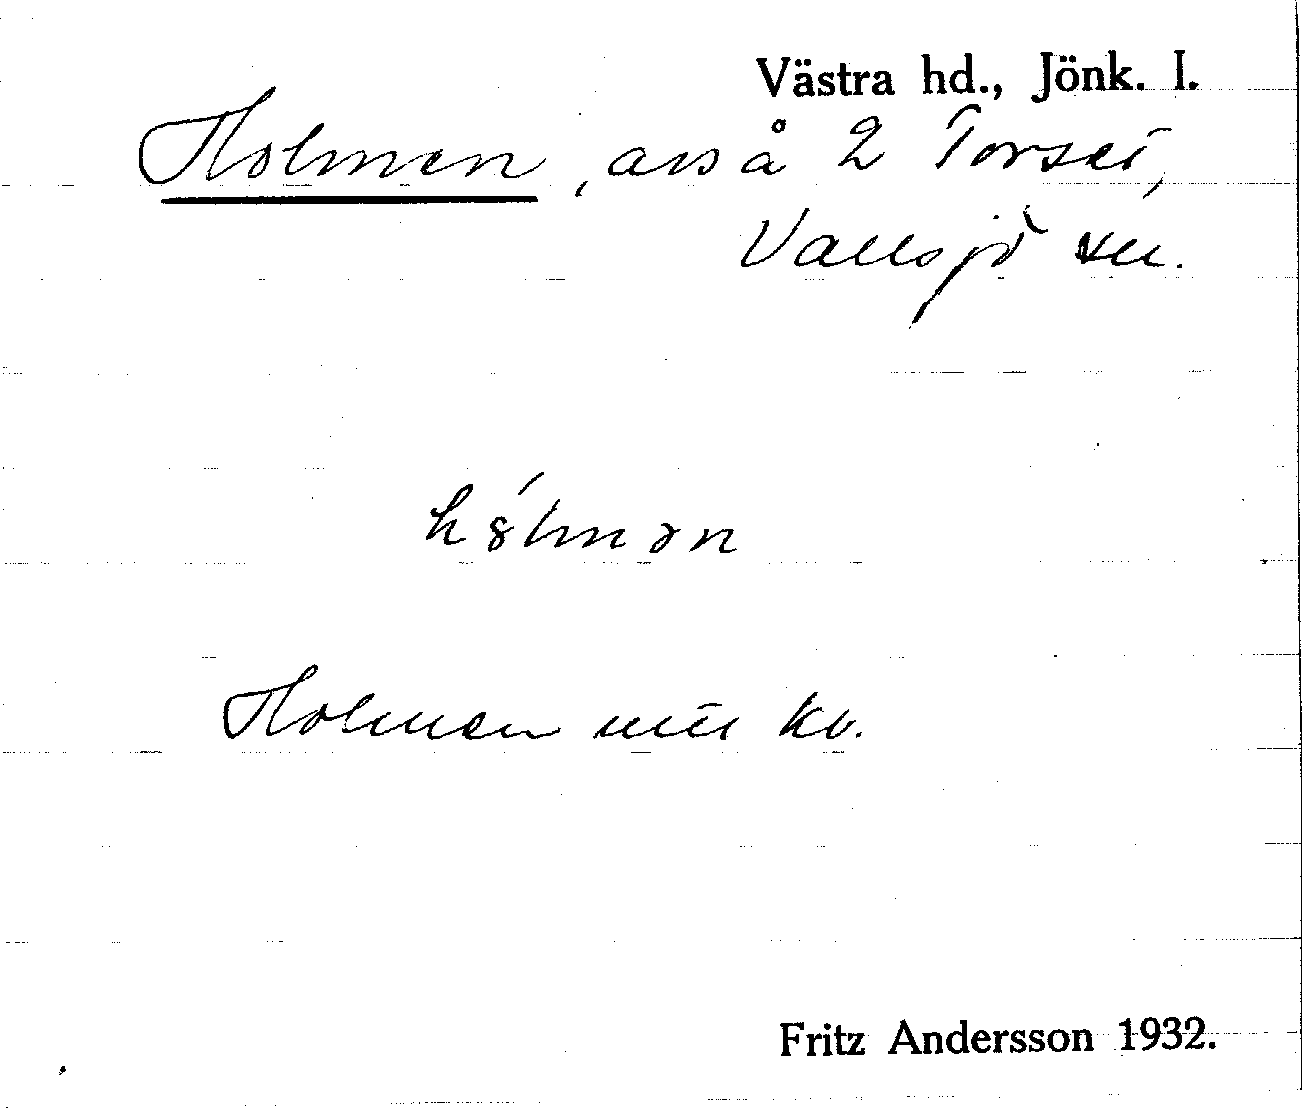 Västra hd., Jönk. l.
Holmen, avs å 2 Torset,
Vallsjö sn.
hólmən
Holmen kv.
Fritz Andersson 1932.